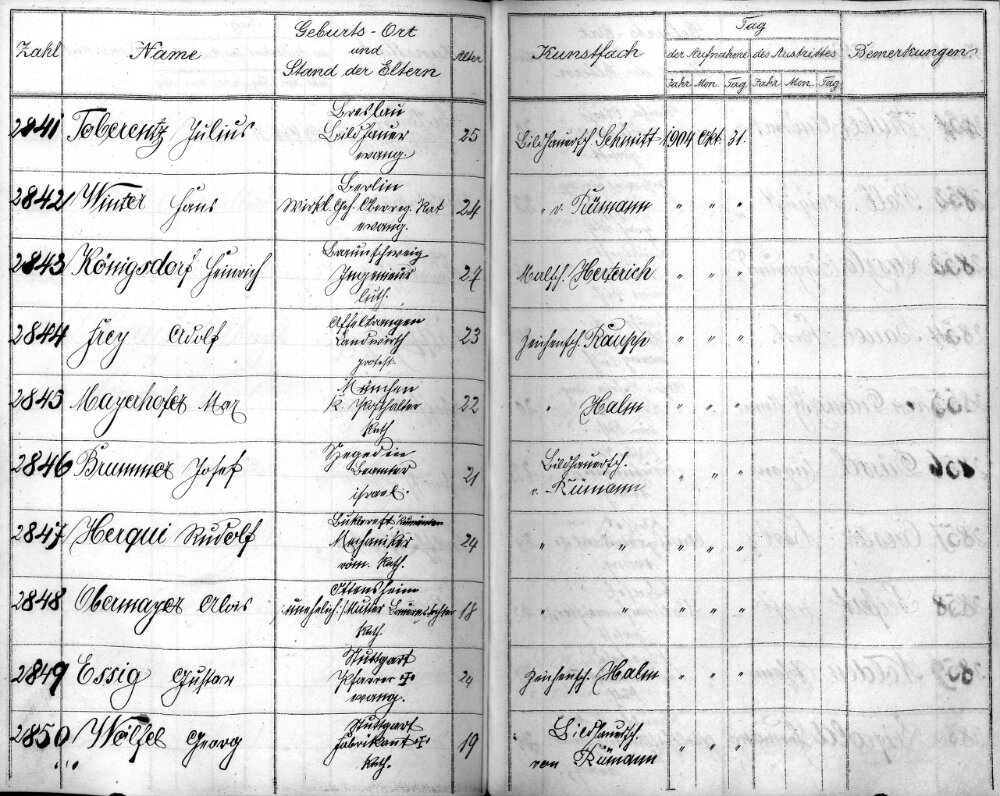 Zahl Name Geburts-Ort und Stand der Eltern Alter Kunstfach Tag der Aufnahme des Austrittes Bemerkungen
Jahr Mon. Tag Jahr Mon. Tag
2841 Toberentz Julius Breslau 25 Bildhauersch. Schmitt 1904 Okt. 31.
Bildhauer
evang.
2842 Winter Hans Berlin 24 " v. Rümann " " "
Wirkl. Geh. Oberreg. Rat
evang.
2843 Königsdorf Heinrich Braunschweig 24 Malsch. Herterich " " "
Ingenieur
luth.
2844 Frey Adolf Affeltrangen 23 Zeichensch. Raupp " " "
Landwirth
protest.
2845 Mayerhofer Max München 22 " Halm " " "
K. Posthalter
Kath.
2846 Brummer Josef Szegedin 21 Bildhauersch. " " "
Beamter v. Rümann
israel.
2847 Herqui Rudolf Bukarest Rumänien 24 " " " " "
Mechaniker
röm. Kath.
2848 Obermayer Alois Ottensheim 18 " " " " "
unehelich; Mutter
Kath.
2849 Essig Gustav Stuttgart 24 Zeichensch. Halm " " "
Pfarrer †
evang.
2850 Wölfel Georg Stuttgart 19 Bildhauersch. " " "
Fabrikant † von Rümann
Kath.